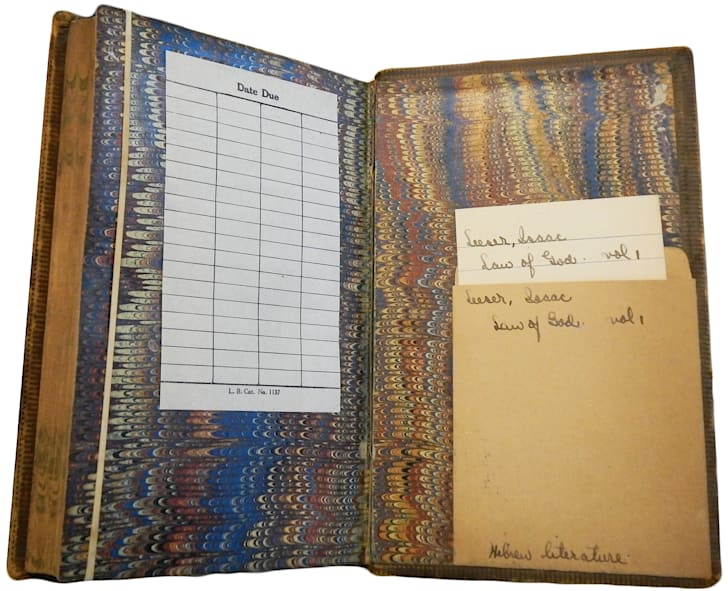 Date Due
L. B. Cat. No. 1137
Leeser, Isaac
Law of God. vol 1
Leeser, Isaac
Law of God. vol 1
Hebrew literature.